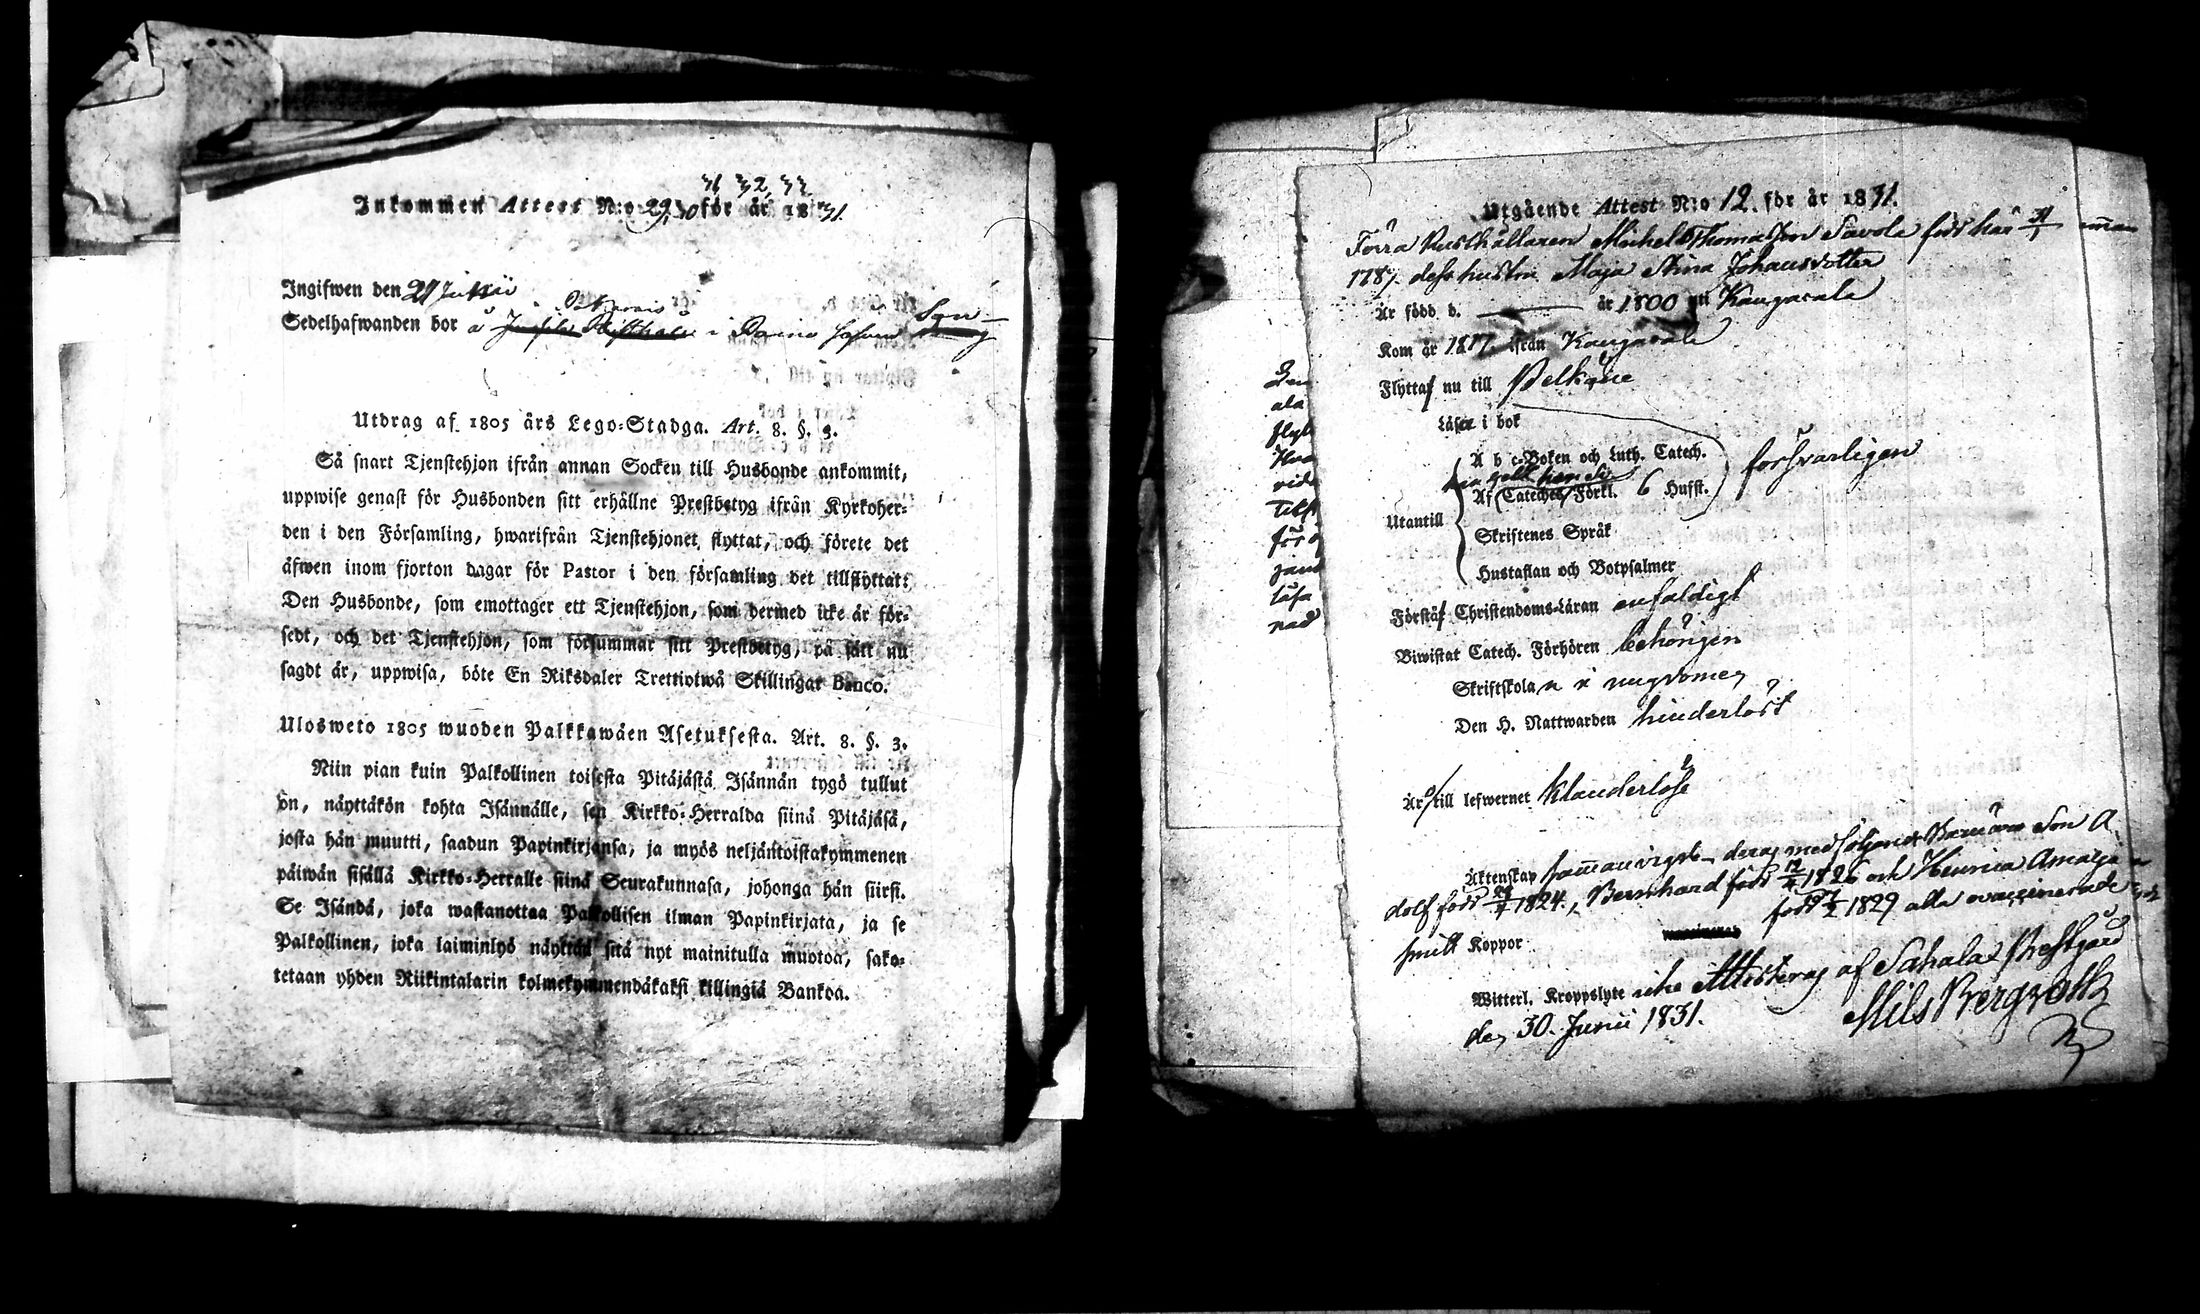 31 32, 33
Inkommen Attest N:o 29, 30 för år 1831.
Ingifwen den 27 Julii
Sedelhafwanden bor å i
Utdrag af 1805 års Lego-Stadga. Art. 8. §. 3.
Så snart Tjenstehjon ifrån annan Socken till Husbonde ankommit,
uppwise genast för Husbonden sitt erhållne Prestbetyg ifrån Kyrkoher-
den i den Församling, hwarifrån Tjenstehjonet flyttat, och förete det
äfwen inom fjorton dagar för Pastor i den församling det tillflyttat:
Den Husbonde, som emottager ett Tjenstehjon, som dermed icke är för-
sedt, och det Tjenstehjon, som försummar sitt Prestbetyg, på sätt nu
sagdt är, uppwisa, böte En Riksdaler Trettiotwå Skillingar Banco.
Ulosweto 1805 wuoden Palkkawäen Asetuksesta. Art. 8. §. 3.
Niin pian kuin Palkollinen toisesta Pitäjästä Isännän tygö tullut
on, näyttäkön kohta Isännälle, sen Kirkko-Herralda siinä Pitäjäsä,
josta hän muutti, saadun Papinkirjansa, ja myös neljäntoistakymmenen
päiwän sisällä Kirkko-Herralle siinä Seurakunnasa, johonga hän siirst.
Se Isändä, joka wastanottaa Palkollisen ilman Papinkirjata, ja se
Palkollinen, joka laiminlyö näyttää sitä nyt mainitulla muotoa, sako-
tetaan yhden Riikintalarin kolmekymmendäkaksi killingiä Bankoa.
Utgående Attest N:o 12. för år 1831.
Förra Rusthållaren Michel Thomasson Savola född här 31/1
1787. dess hustru Maja Stina Johansdotter
Är född d. år 1800 uti Kangasala
Kom år 1817 ifrån Kangasala
Flyttar nu till Pelkäne
Läser i bok
A b c-Boken och Luth. Catech. försvarligen
Af Cateches Förkl. 6 Hufst.
Utantill
Skriftenes Språk
Hustaflan och Botpsalmer
Förstår Christendoms-Läran enfaldigt
Biwistat Catech. Förhören behörigen
Skriftskolan i ungdomen
Den H. Nattwarden hinderlöst
Är till lefwernet klanderlöse
Äktenskap sammanvigde deras medföljande Barn äro Son A-
dolf född 1824., Bernhard född 12/4 1826 och Henrica Amalja
född 1829 alla vaccinerade
smitt Koppor
Witterl. Kroppslyte icke Attesteras af Sahalax Prestgård
den 30. Junii 1831. Nils Bergroth